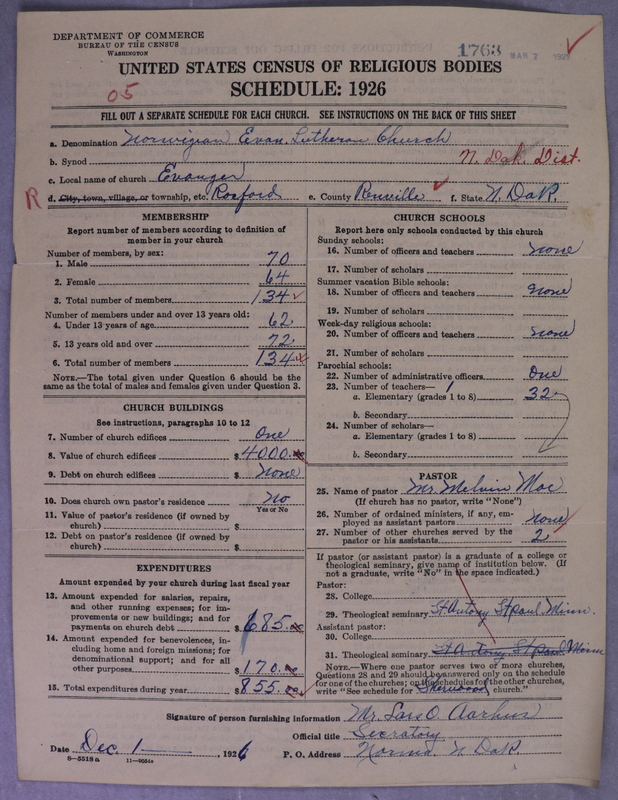 DEPARTMENT OF COMMERCE
BUREAU OF THE CENSUS
WASHINGTON
1763 MAR 2
UNITED STATES CENSUS OF RELIGIOUS BODIES
SCHEDULE: 1926
05
FILL OUT A SEPARATE SCHEDULE FOR EACH CHURCH. SEE INSTRUCTIONS ON THE BACK OF THIS SHEET
a. Denomination Norwigean Evan. Lutheran Church
b. Synod N. Dak. Dist.
c. Local name of church Evanger
R d. City, town, village, or township, etc. Roxford e. County Renville f. State N. Dak.
MEMBERSHIP
Report number of members according to definition of
member in your church
Number of members, by sex:
1. Male 70
2. Female 64
3. Total number of members 134
Number of members under and over 13 years old:
4. Under 13 years of age 62
5. 13 years old and over 72
6. Total number of members 134
NOTE.—The total given under Question 6 should be the
same as the total of males and females given under Question 3.
CHURCH BUILDINGS
See instructions, paragraphs 10 to 12
7. Number of church edifices One
8. Value of church edifices $4000.00
9. Debt on church edifices $None
10. Does church own pastor's residence No
Yes or No
11. Value of pastor's residence (if owned by
church) $
12. Debt on pastor's residence (if owned by
church) $
EXPENDITURES
Amount expended by your church during last fiscal year
13. Amount expended for salaries, repairs,
and other running expenses; for im-
provements or new buildings; and for
payments on church debt $685.00
14. Amount expended for benevolences, in-
cluding home and foreign missions; for
denominational support; and for all
other purposes $170.00
15. Total expenditures during year $855.00
CHURCH SCHOOLS
Report here only schools conducted by this church
Sunday schools:
16. Number of officers and teachers None
17. Number of scholars
Summer vacation Bible schools:
18. Number of officers and teachers None
19. Number of scholars
Week-day religious schools:
20. Number of officers and teachers None
21. Number of scholars
Parochial schools:
22. Number of administrative officers One
23. Number of teachers— 1
a. Elementary (grades 1 to 8) 32
b. Secondary
24. Number of scholars—
a. Elementary (grades 1 to 8)
b. Secondary
PASTOR
25. Name of pastor Mr. Melvin Moe
(If church has no pastor, write "None")
26. Number of ordained ministers, if any, em-
ployed as assistant pastors None
27. Number of other churches served by the
pastor or his assistants 2
If pastor (or assistant pastor) is a graduate of a college or
theological seminary, give name of institution below. (If
not a graduate, write "No" in the space indicated.)
Pastor:
28. College
29. Theological seminary St Antony St paul Minn.
Assistant pastor:
30. College
31. Theological seminary St Antony St paul Minn
NOTE.—Where one pastor serves two or more churches,
Questions 28 and 29 should be answered only on the schedule
for one of the churches; on the schedules for the other churches,
write "See schedule for Sherwood church."
Signature of person furnishing information Mr. Lars O. Aarhus
Official title Secratory
Date Dec. 1, 1926 P. O. Address Norma. N. Dak.
8—5518a 11—9054